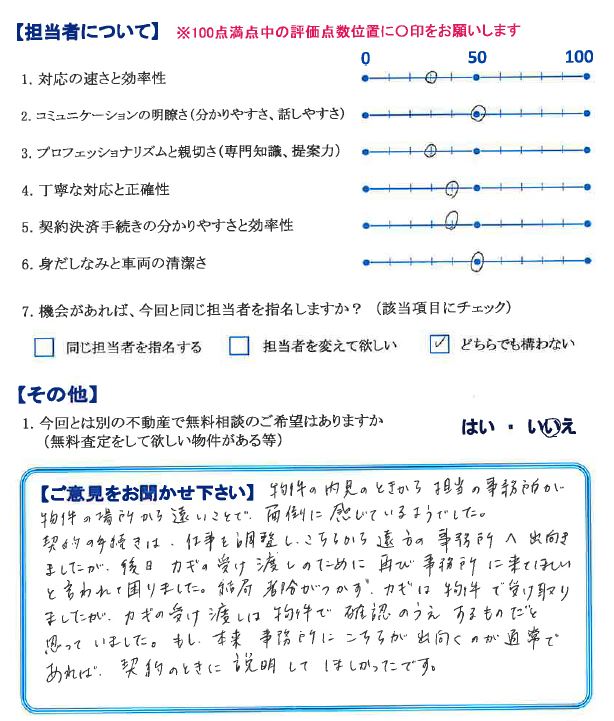 【担当者について】 ※100点満点中の評価点数位置に〇印をお願いします
0 50 100
1. 対応の速さと効率性
2. コミュニケーションの明瞭さ(分かりやすさ、話しやすさ)
3. プロフェッショナリズムと親切さ(専門知識、提案力)
4. 丁寧な対応と正確性
5. 契約決済手続きの分かりやすさと効率性
6. 身だしなみと車両の清潔さ
7. 機会があれば、今回と同じ担当者を指名しますか? (該当項目にチェック)
同じ担当者を指名する 担当者を変えて欲しい ✓ どちらでも構わない
【その他】
1. 今回とは別の不動産で無料相談のご希望はありますか はい ・ いいえ
(無料査定をして欲しい物件がある等)
【ご意見をお聞かせ下さい】 物件の内見のときから担当の事務所が
物件の場所から遠いことで、面倒に感じているようでした。
契約の手続きは、仕事を調整し、こちらから遠方の事務所へ出向き
ましたが、後日カギの受け渡しのために再び事務所に来てほしい
と言われて困りました。結局 がつかず、カギは物件で受け取り
ましたが、カギの受け渡しは物件で確認のうえするものだと
思っていました。もし、本来事務所にこちらが出向くのが通常で
あれば、契約のときに説明してほしかったです。